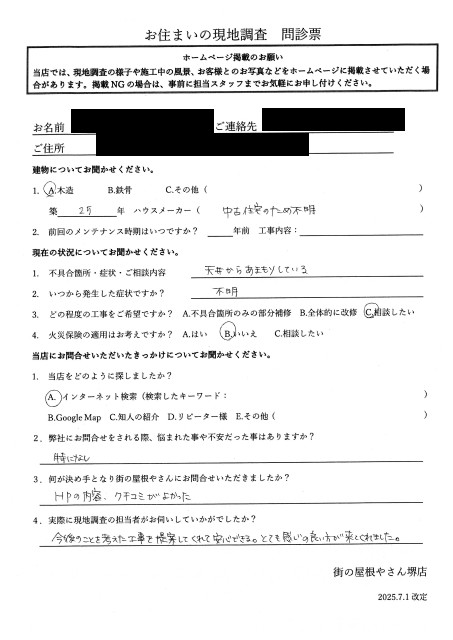 お住まいの現地調査 問診票
ホームページ掲載のお願い
当店では、現地調査の様子や施工中の風景、お客様とのお写真などをホームページに掲載させていただく場
合があります。掲載 NG の場合は、事前に担当スタッフまでお気軽にお申し付けください。
お名前 ご連絡先
ご住所
建物についてお聞かせください。
1. A.木造 B.鉄骨 C.その他（ ）
築 25 年 ハウスメーカー（ 中古住宅のため不明 ）
2. 前回のメンテナンス時期はいつですか？ 年前 工事内容：
現在の状況についてお聞かせください。
1. 不具合箇所・症状・ご相談内容 天井からあまもりしている
2. いつから発生した症状ですか？ 不明
3. どの程度の工事をご希望ですか？ A.不具合箇所のみの部分補修 B.全体的に改修 C.相談したい
4. 火災保険の適用はお考えですか？ A.はい B.いいえ C.相談したい
当店にお問合せいただいたきっかけについてお聞かせください。
1. 当店をどのように探しましたか？
A. インターネット検索（検索したキーワード： ）
B.Google Map C.知人の紹介 D.リピーター様 E.その他（ ）
2．弊社にお問合せをされる際、悩まれた事や不安だった事はありますか？
特になし
3．何が決め手となり街の屋根やさんにお問合せいただきましたか？
HPの内容、クチコミがよかった
4．実際に現地調査の担当者がお伺いしていかがでしたか？
今後のことを考えた工事を提案してくれて安心できる。とても感じの良い方が来てくれました。
街の屋根やさん堺店
2025.7.1 改定